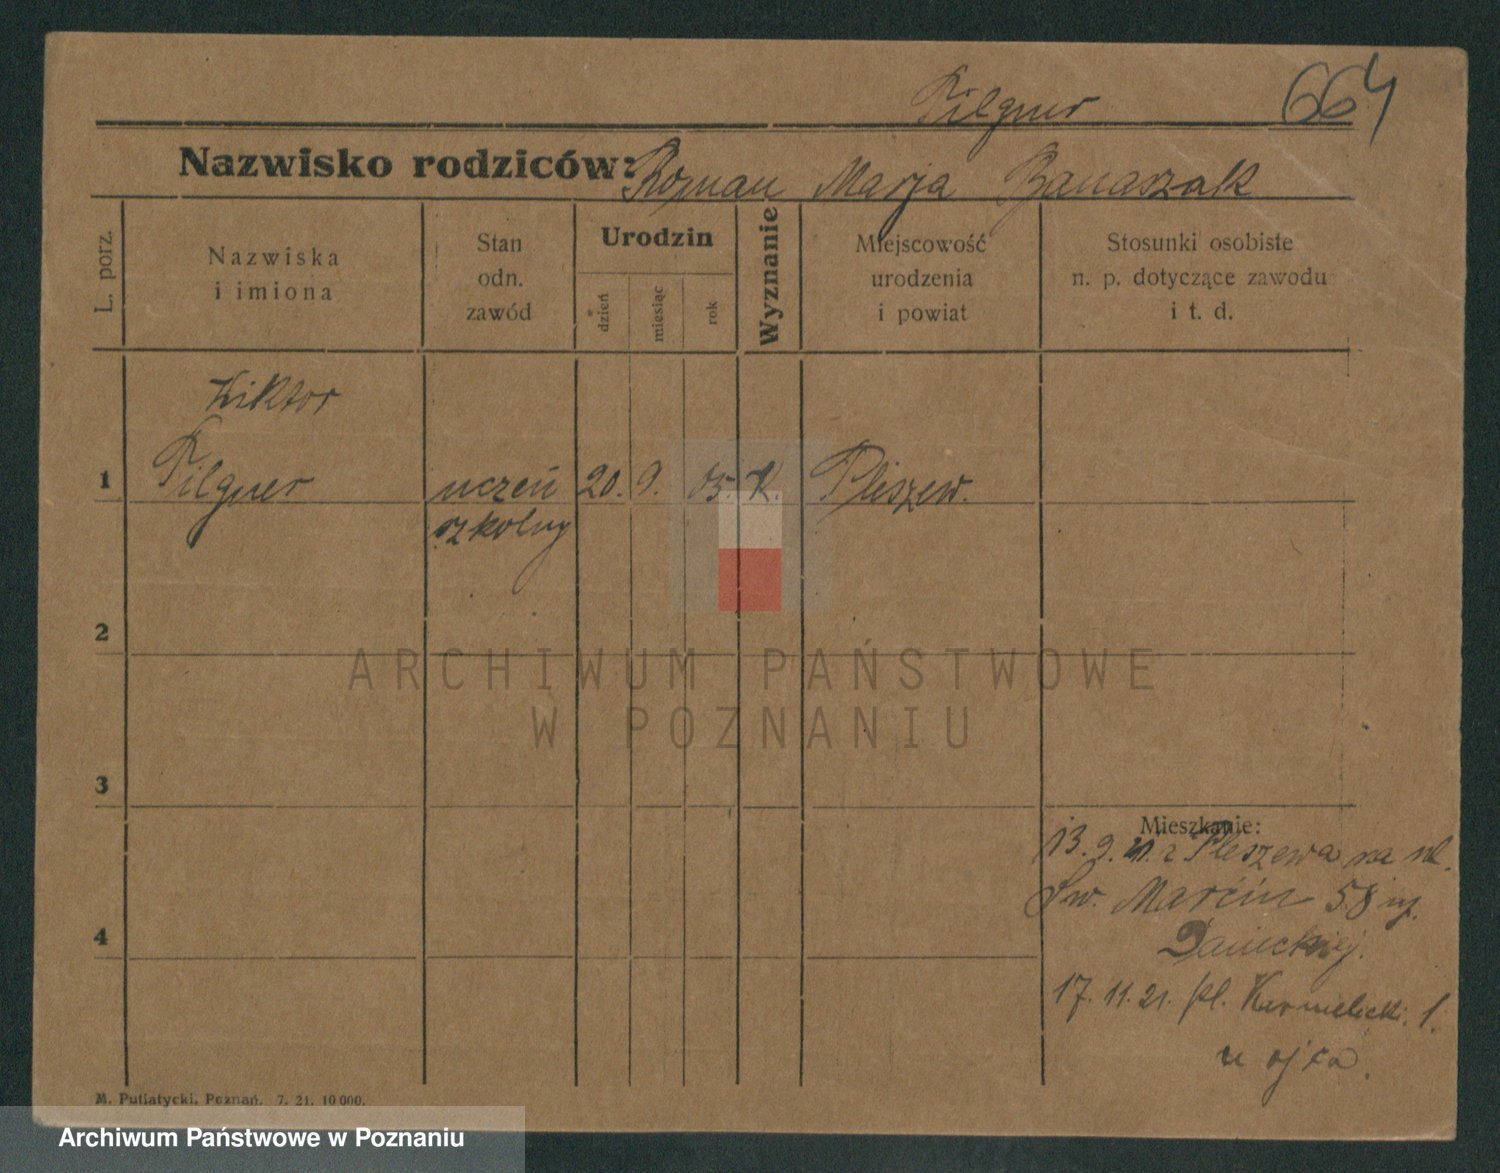 Pilgner 664
Nazwisko rodziców: Roman Marja Banaszak
L. porz.
Nazwiska
i imiona
Stan
odn.
zawód
Urodzin
dzień
miesiąc
rok
Wyznanie
Miejscowość
urodzenia
i powiat
Stosunki osobiste
n. p. dotyczące zawodu
i t. d.
Wiktor
1 Pilgner uczeń 20. 9. 05. K. Pleszew.
szkolny
2
3
4
Mieszkanie:
13. 9. 21. z Pleszewa na ul.
Św. Marcin 58
17. 11. 21. pl. Karmelicki. 1.
u ojca.
M. Putiatycki, Poznań. 7. 21. 10 000.
ARCHIWUM PAŃSTWOWE
W POZNANIU
Archiwum Państwowe w Poznaniu